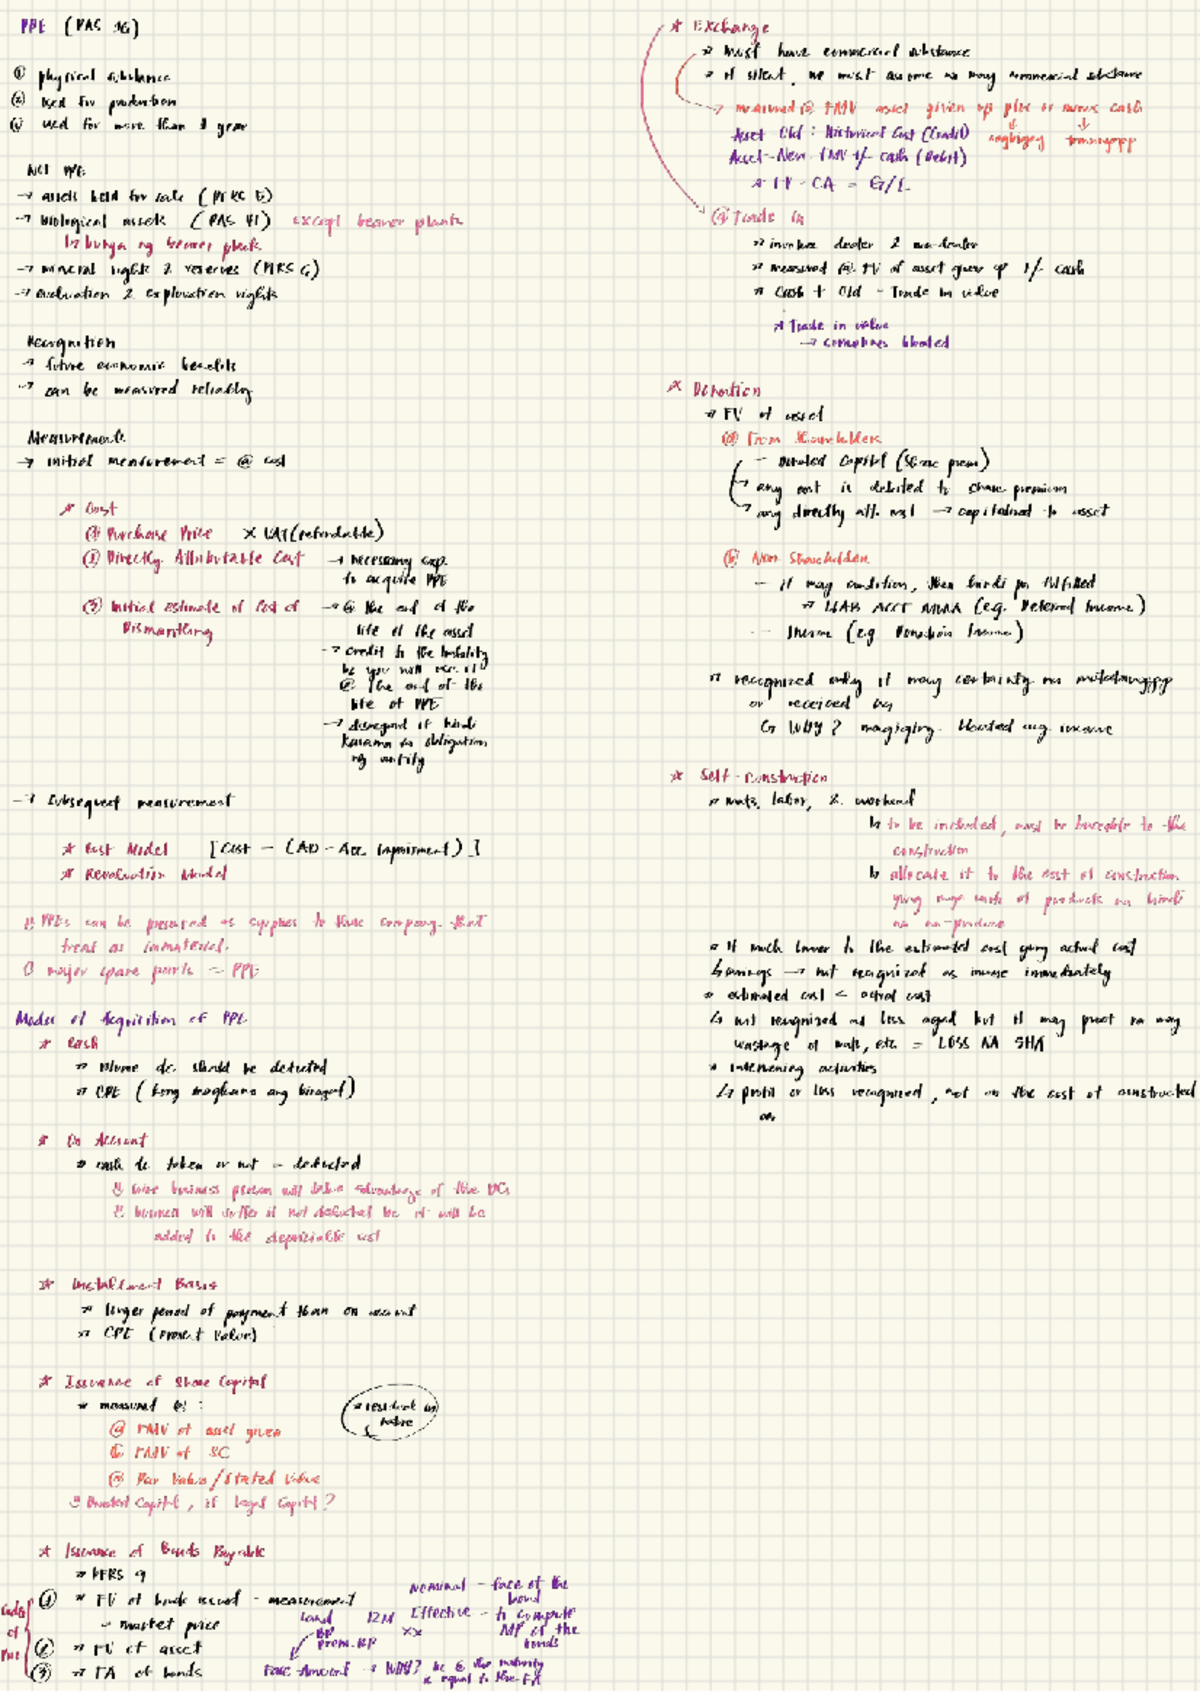 PPE (PAS 16)
① physical substance
② used for production
③ used for more than 1 year
Not PPE
→ assets held for sale (PFRS 5)
→ biological assets (PAS 41) except bearer plants
↳ bunga ng bearer plants
→ mineral rights & reserves (PFRS 6)
→ evaluation & exploration rights
Recognition
→ future economic benefits
→ can be measured reliably
Measurement
→ initial measurement = @ cost
* Cost
① Purchase Price × VAT (refundable)
② Directly Attributable Cost → necessary exp.
to acquire PPE
③ Initial estimate of Cost of → @ the end of the
Dismantling life of the asset
→ credit to the liability
bc you will use it
@ the end of the
life of PPE
→ disregard if hindi
kasama sa obligation
ng entity
→ Subsequent measurement
* Cost Model [Cost - (AD - Acc. Impairment)]
* Revaluation Model
!! PPEs can be presented as supplies to those company that
treat as immaterial.
major spare parts - PPE
Modes of Acquisition of PPE
* Cash
→ volume dc. should be deducted
→ CPE (kung magkano ang binayad)
* On Account
→ cash dc taken or not - deducted
!! wise business person will take advantage of the DCs
!! business will suffer if not deducted bc it will be
added to the depreciable cost
* Installment Basis
→ longer period of payment than on account
→ CPE (Present Value)
* Issuance of Share Capital
→ measured @:
ⓐ FMV of asset given
ⓑ FMV of SC
ⓒ Par Value/Stated Value
!! Donated Capital, is legal Capital?
* residual in
nature
* Issuance of Bonds Payable
→ PFRS 9
① → FV of bonds issued - measurement
- market price
② → FV of asset
③ → FA of bonds
of
Land 12M
BP xx
prem. BP
Face Amount → WHY? bc @ the maturity
is equal to the FA
Nominal - face of the
bond
Effective - to compute
MP of the
bonds
* Exchange
→ Must have commercial substance
→ if silent, we must assume na may commercial substance
→ measured @ FMV asset given up plus or minus cash
Asset Old : Historical Cost (Credit) nagbigay tumanggap
Asset-New: FMV +/- cash (Debit)
→ FV - CA = G/L
ⓐ Trade in
→ involve dealer & non-dealer
→ measured @ FV of asset given up +/- cash
→ Cash + Old - Trade in value
* Trade in value
→ sometimes bloated
* Donation
→ FV of asset
ⓐ From Shareholders
- Donated Capital (Share prem)
→ any cost is debited to share premium
→ any directly att. cost → capitalized to asset
ⓑ Non Shareholders
- if may condition, then hindi pa fulfilled
→ LIAB ACCT MUNA (e.g. Deferred Income)
- Income (e.g. Donation Income)
→ recognized only if may certainty na matatanggap
or received na
↳ WHY? magiging bloated ang income
* Self-Construction
→ mats, labor, & overhead
↳ to be included, must be traceable to the
construction
↳ allocate it to the cost of construction
yung mga units of products na hindi
na na-produce
→ If much lower to the estimated cost yung actual cost
↳ savings → not recognized as income immediately
→ estimated cost < actual cost
↳ not recognized as loss agad but if may proof na may
wastage of mats, etc. = LOSS NA SHA
→ intervening activities
↳ profit or loss recognized, not on the cost of constructed